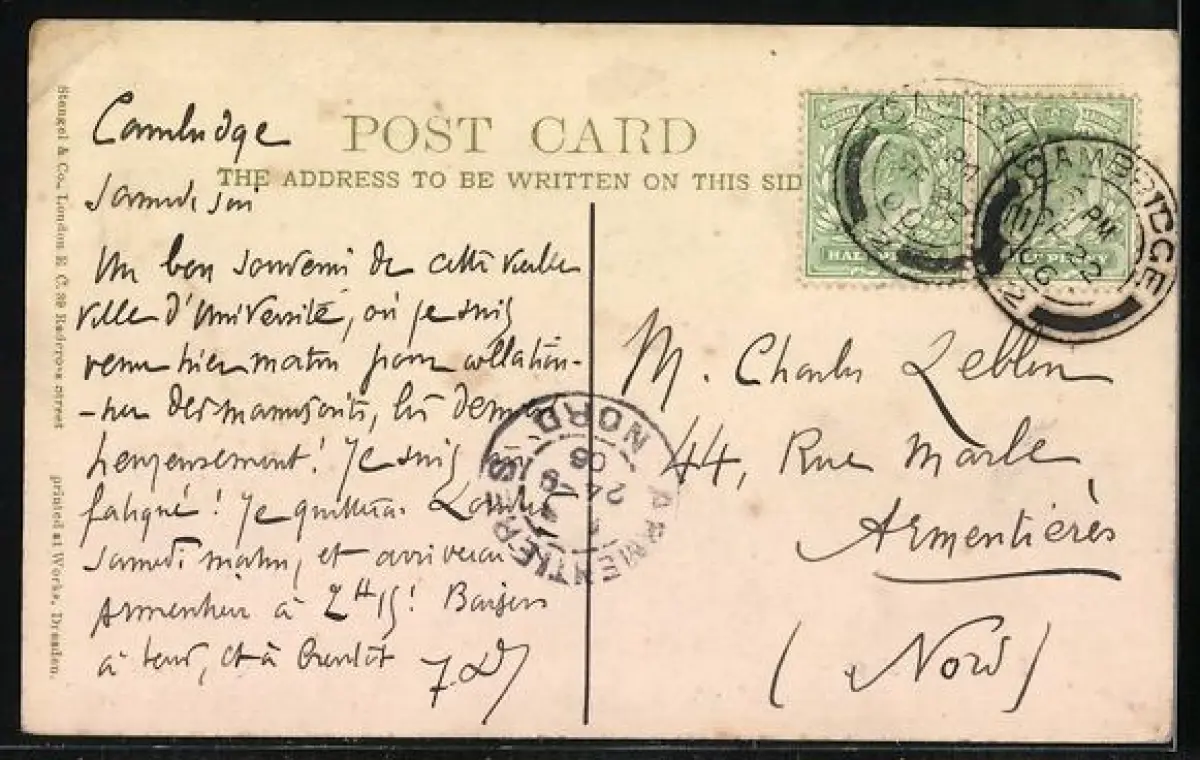 POST CARD
THE ADDRESS TO BE WRITTEN ON THIS SID
Stengel & Co., London E. C. 39 Redcross street
printed at Works, Dresden.
Cambridge
Samedi soir
Un bon souvenir de cette vieille
ville d'Université, où je suis
venu hier matin pour collation-
-ner des manuscrits,
heureusement! Je suis
fatigué! Je quitterai Londres
samedi matin, et arriverai
Armentières à 2H15! Baisers
à tous, et à bientôt
HALF PENNY
HALF PENNY
CAMBRIDGE
PM
ARMENTIERES
24-9
06
NORD
M. Charles Leblon
44, Rue Marle
Armentières
(Nord)